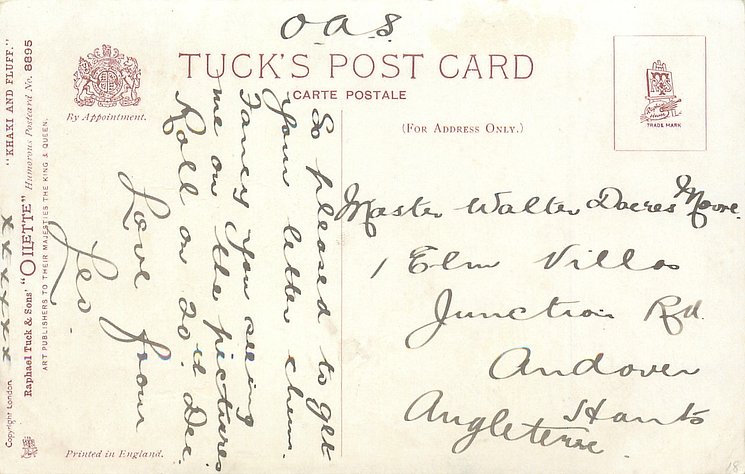 O.A.S.
TUCK'S POST CARD
CARTE POSTALE
By Appointment.
(FOR ADDRESS ONLY.)
TRADE MARK
"KHAKI AND FLUFF."
Raphael Tuck & Sons' "OILETTE" Humorous Postcard No. 8895
ART PUBLISHERS TO THEIR MAJESTIES THE KING & QUEEN.
Copyright London
x x x x x x
So pleased to get
your letter chum.
Fancy you seeing
me on the pictures
Roll on 20th Dec.
Love from
Leo.
Master Walter Dacres Moore.
1 Elm Villas
Junction Rd
Andover
Hants
Angleterre
Printed in England.
18